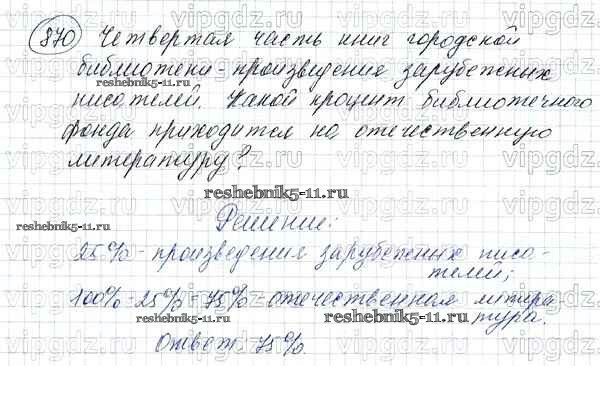 870 Четвертая часть книг городской
библиотеки - произведения зарубежных
писателей. Какой процент библиотечного
фонда приходится на отечественную
литературу?
reshebnik5-11.ru
reshebnik5-11.ru
Решение:
25% - произведения зарубежных писа-
телей;
100% - 25% = 75% отечественная литера-
тура.
reshebnik5-11.ru
reshebnik5-11.ru
Ответ: 75%.
vipgdz.ru